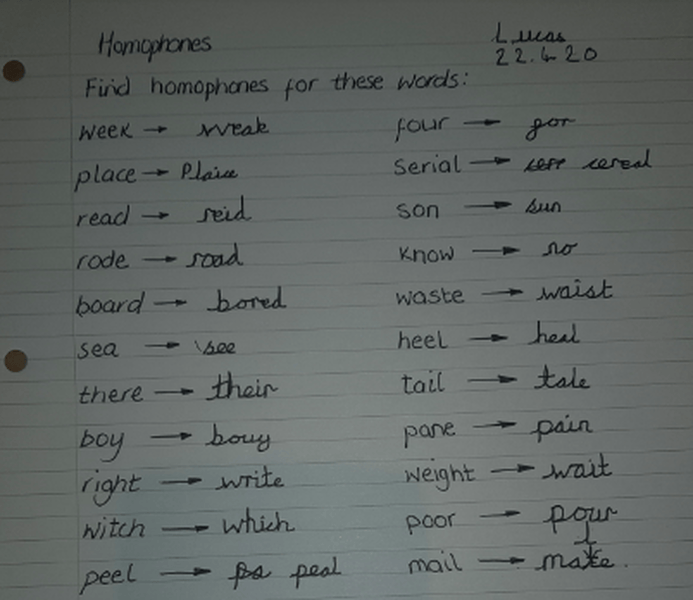 Homophones Lucas
22.4.20
Find homophones for these words:
week → weak four → for
place → Plaice serial → cereal
read → reid son → sun
rode → road know → no
board → bored waste → waist
sea → see heel → heal
there → their tail → tale
boy → bouy pane → pain
right → write weight → wait
witch → which poor → pour
peel → peal mail →